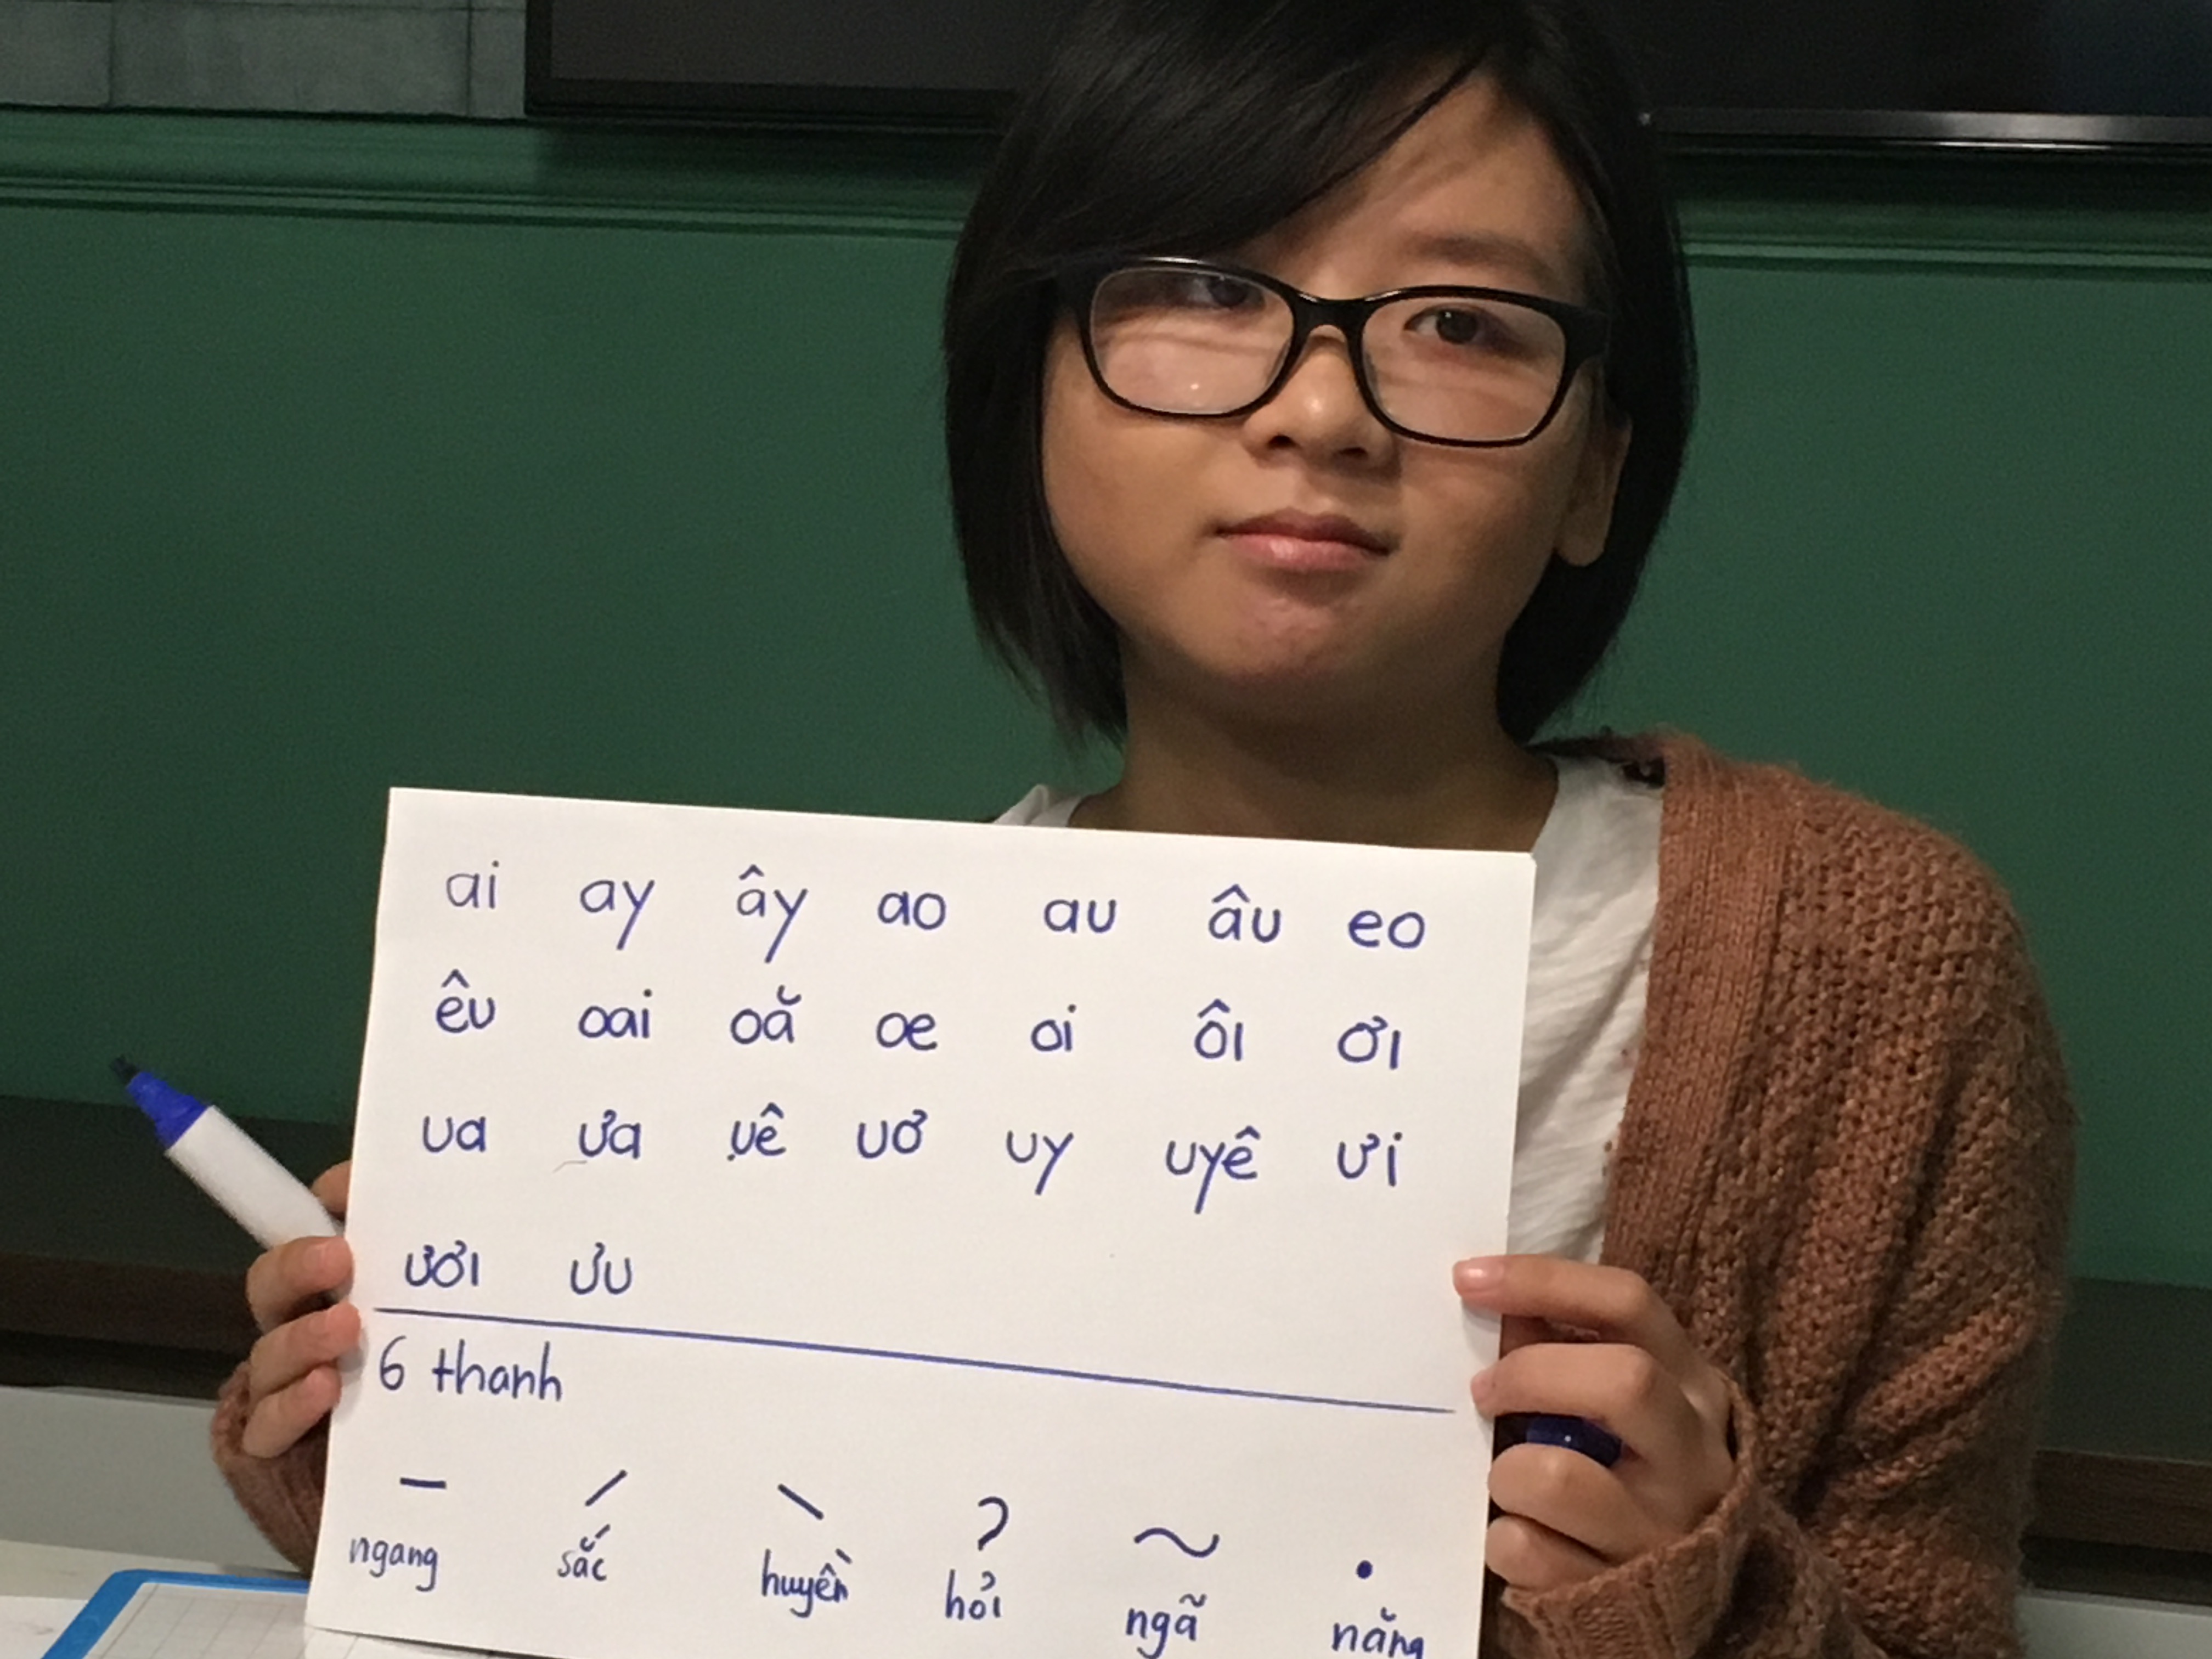 ai ay ây ao au âu eo
êu oai oă oe oi ôi ơi
ua ưa uê uơ uy uyê ưi
ươi ưu
6 thanh
– / \ ? ~ .
ngang sắc huyền hỏi ngã nặng